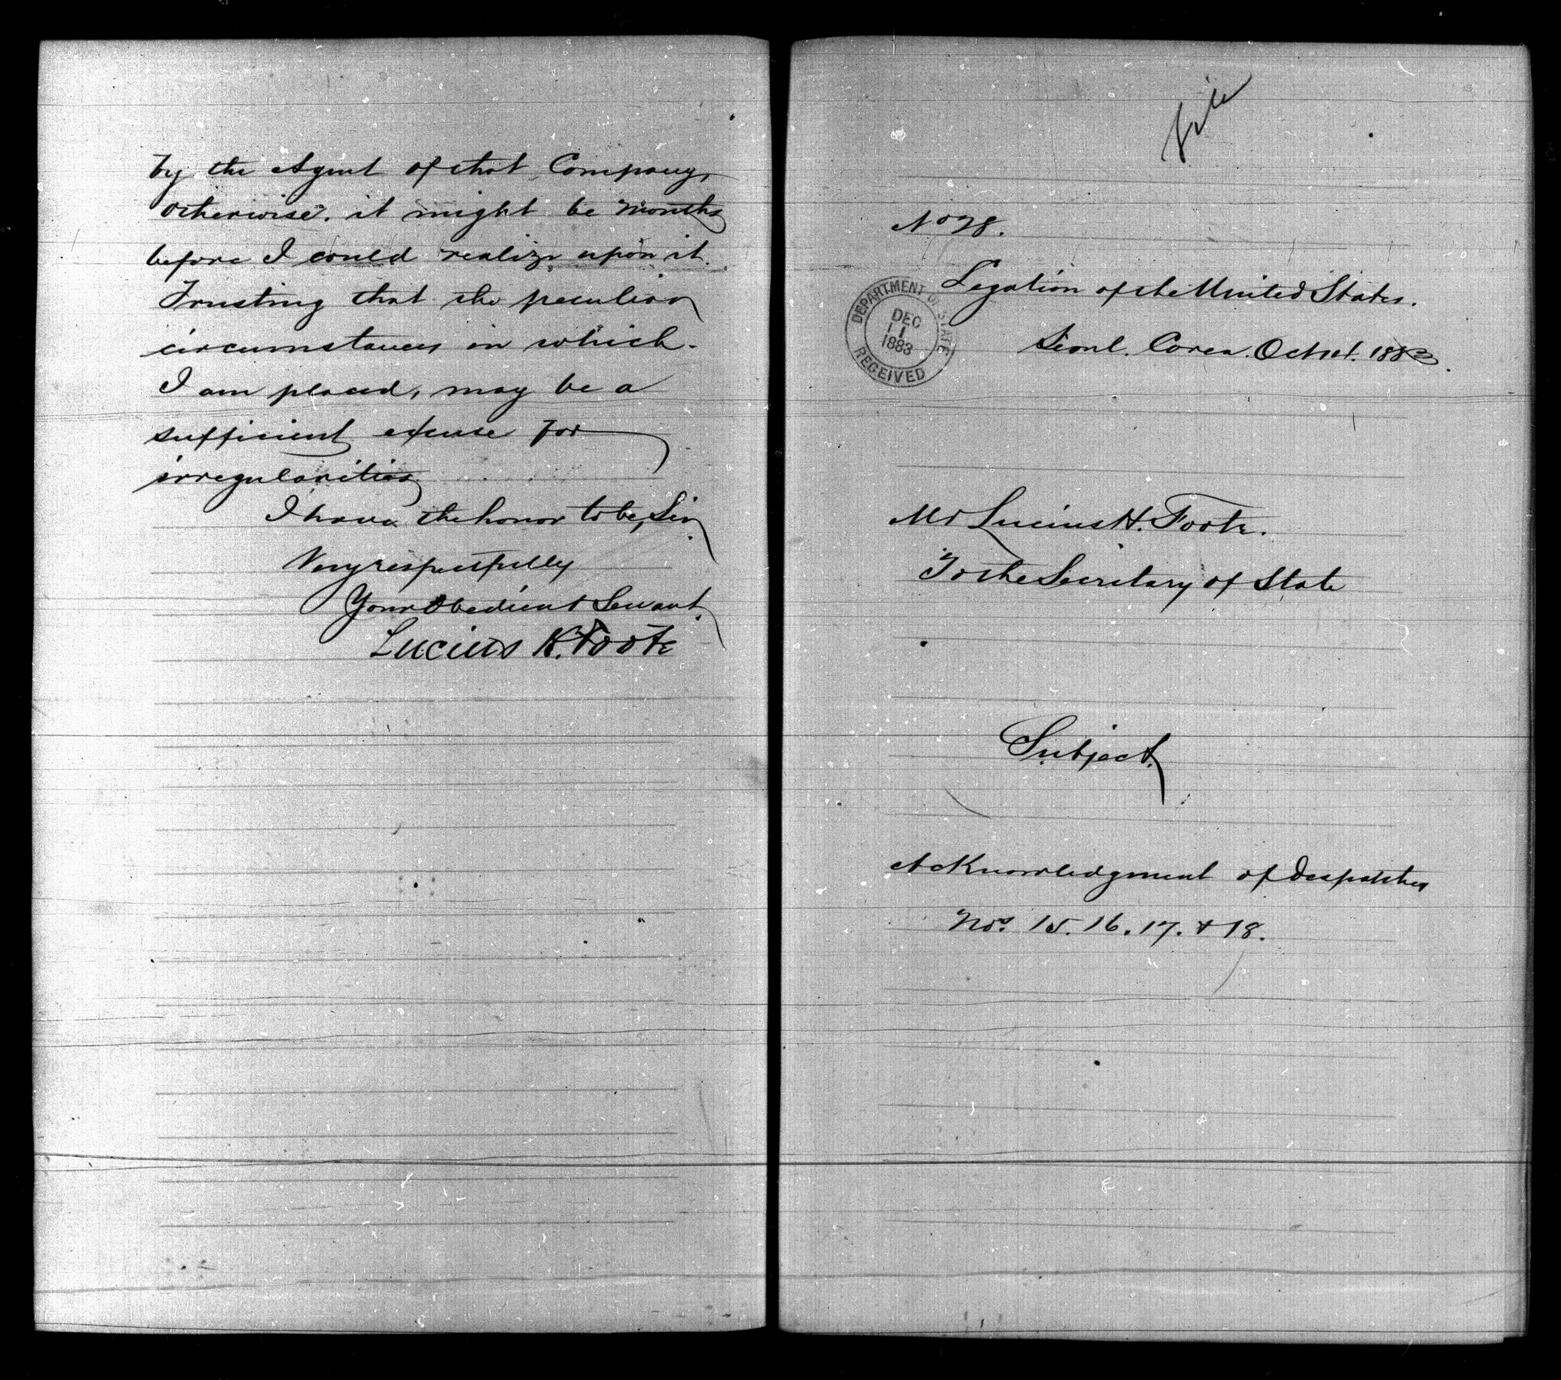 by the Agent of that Company,
otherwise, it might be months
before I could realize upon it.
Trusting that the peculiar
circumstances in which
I am placed, may be a
sufficient excuse for
irregularities
I have the honor to be, Sir,
Very respectfully
Your Obedient Servant,
Lucius H. Foote
file
No 28.
Legation of the United States.
Seoul. Corea. Oct 1883.
DEPARTMENT OF STATE
DEC
11
1883
RECEIVED
Mr Lucius H. Foote.
To the Secretary of State
Subject.
Acknowledgment of Despatches
Nos. 15. 16. 17. & 18.